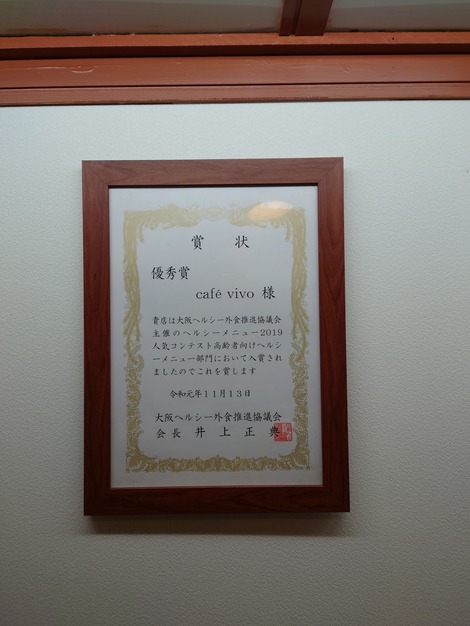 賞 状
優秀賞
café vivo 様
貴店は大阪ヘルシー外食推進協議会
主催のヘルシーメニュー2019
人気コンテスト高齢者向けヘルシ
ーメニュー部門において入賞され
ましたのでこれを賞します
令和元年11月13日
大阪ヘルシー外食推進協議会
会長 井上正典